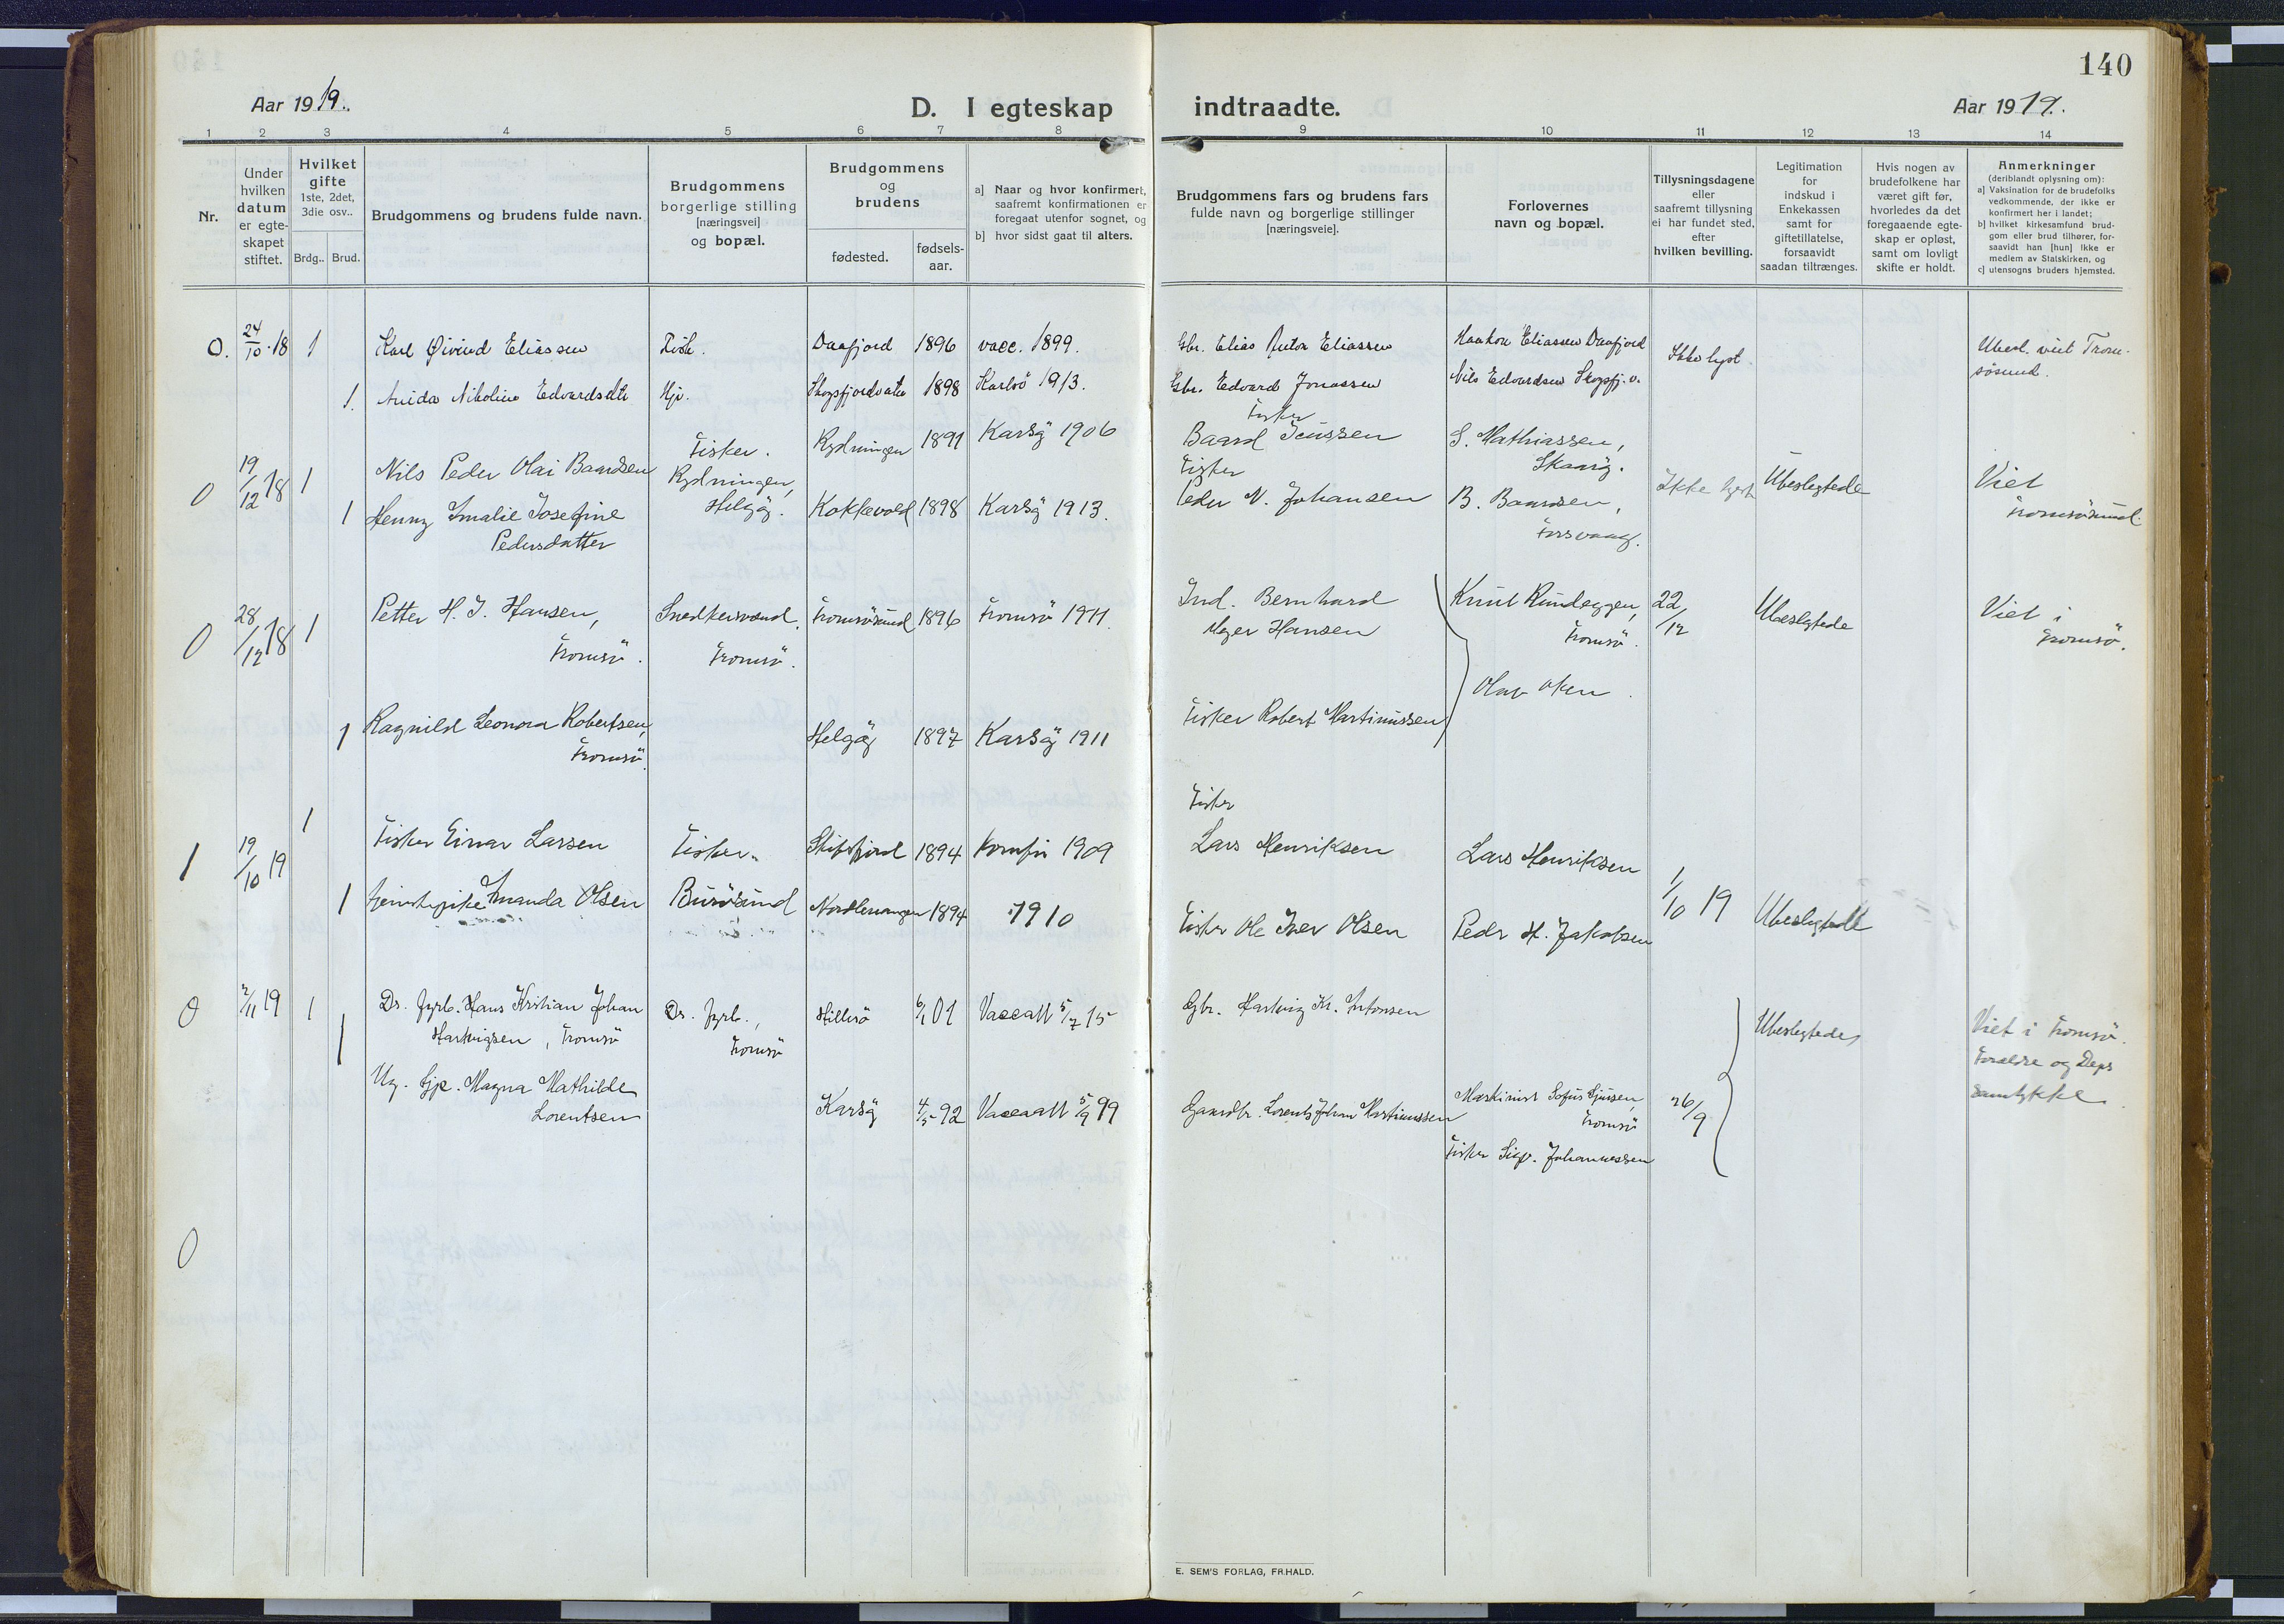 140
Aar 1919.
D. I egteskap indtraadte.
Aar 1919.
1 2 3 4 5 6 7 8 9 10 11 12 13 14
Nr.
Under
hvilken
datum
er egte-
skapet
stiftet.
Hvilket
gifte
1ste, 2det,
3die osv..
Brdg.. Brud.
Brudgommens og brudens fulde navn.
Brudgommens
borgerlige stilling
[næringsvei]
og bopæl.
Brudgommens
og
brudens
fødested.
fødsels-
aar.
a] Naar og hvor konfirmert,
saafremt konfirmationen er
foregaat utenfor sognet, og
b] hvor sidst gaat til alters.
Brudgommens fars og brudens fars
fulde navn og borgerlige stillinger
[næringsveie].
Forlovernes
navn og bopæl.
Tillysningsdagene
eller
saafremt tillysning
ei har fundet sted,
efter
hvilken bevilling.
Legitimation
for
indskud i
Enkekassen
samt for
giftetillatelse,
forsaavidt
saadan tiltrænges.
Hvis nogen av
brudefolkene har
været gift før,
hvorledes da det
foregaaende egte-
skap er opløst,
samt om lovligt
skifte er holdt.
Anmerkninger
(deriblandt oplysning om):
a] Vaksination for de brudefolks
vedkommende, der ikke er
konfirmert her i landet;
b] hvilket kirkesamfund brud-
gom eller brud tilhører, for-
saavidt han [hun] ikke er
medlem av Statskirken, og
c] utensogns bruders hjemsted.
O. 24/10.18 1 Karl Øivind Eliassen Fisk. Daafjord 1896 vacc. 1899. Gbr. Elias Anton Eliassen Haakon Eliassen Daafjord Ikke lyst. Ubesl. viet Trom-
søsund.
1. Nikoline Edvardsdtr Skogsfjordvatn 1898 Karlsö 1913. Gbr. Edvard Jonassen Nils Edvardsen Skogsfj.v.
O 19/12 18 1 Nils Peder Olai Baardsen Fisker. Rydningen 1891 Karlsö 1906 Fisker
Baard Jenssen S. Mathiassen, Ikke lyst Ubeslegtede Viet
Tromsösund.
Rydningen,
Helgö.
1 Henny Amalie Josefine
Pedersdatter Koklevold 1898 Karlsö 1913. Fisker
Peder N. Johansen B. Baardsen,
O 28/12 18 1 Petter H. J. Hansen,
Tromsö. Snedkersvend,
Tromsö. Tromsösund 1896 Tromsö 1911. Ind. Bernhard
Meyer Hansen Knut Rundeggen,
Tromsö. 22/12 Ubeslegtede Viet i
Tromsö.
1 Ragnild Leonora Robertsen,
Tromsö. Helgöy 1897 Karlsö 1911 Fisker Robert Martinussen
1 19/10 19 1 Fisker Einar Larsen Fisker. Skipsfjord 1894 Konfir 1909 Fisker
Lars Henriksen Lars Henriksen 1/10 19 Ubeslegtede
1 Tjenestepike Amanda Olsen Burösund Nordlenangen 1894 1910 Fisker Ole Iver Olsen Peder H. Jakobsen
O 2/11 19 1 Dr. fyrb. Hans Kristian Johan
Hartvigsen, Tromsö Dr. fyrb.,
Tromsö Hillesö 6/1 01 Vaccatt 5/7 15 Gbr. Hartvig Kr. Antonsen Ubeslegtede Viet i Tromsö.
Forældre og Deps
samtykke.
1 Ug. tjp. Magna Mathilde
Lorentsen Karlsö 4/5 92 Vaccatt 5/9 99 Gaardbr. Lorents Johan Martinussen Maskinist Sofus Sjursen,
Tromsö 26/9
Fisker Sigv. Johannessen
O
E. SEM'S FORLAG, FR.HALD.